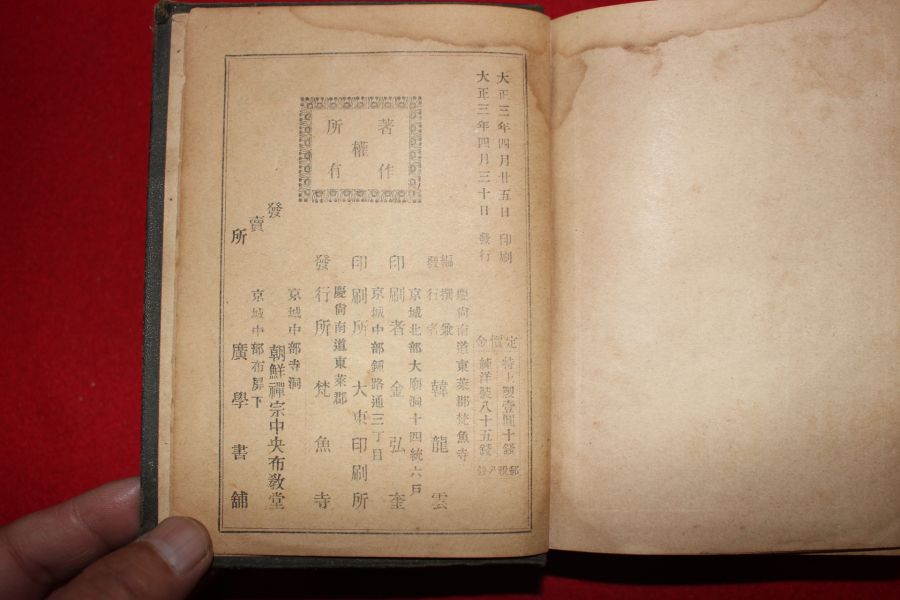 大正三年四月廿五日 印刷
大正三年四月三十日 發行
定價金
特上製壹圓十錢
純洋裝八十五錢
郵稅
著作
權
所有
慶尙南道東萊郡梵魚寺
編撰兼
發行者 韓龍雲
京城北部大廟洞十四統六戶
印刷者 金弘奎
京城中部鍾路通三丁目
印刷所 大東印刷所
慶尙南道東萊郡
發行所 梵魚寺
京城中部寺洞
朝鮮禪宗中央布敎堂
發賣所
京城中部布屛下
廣學書舖